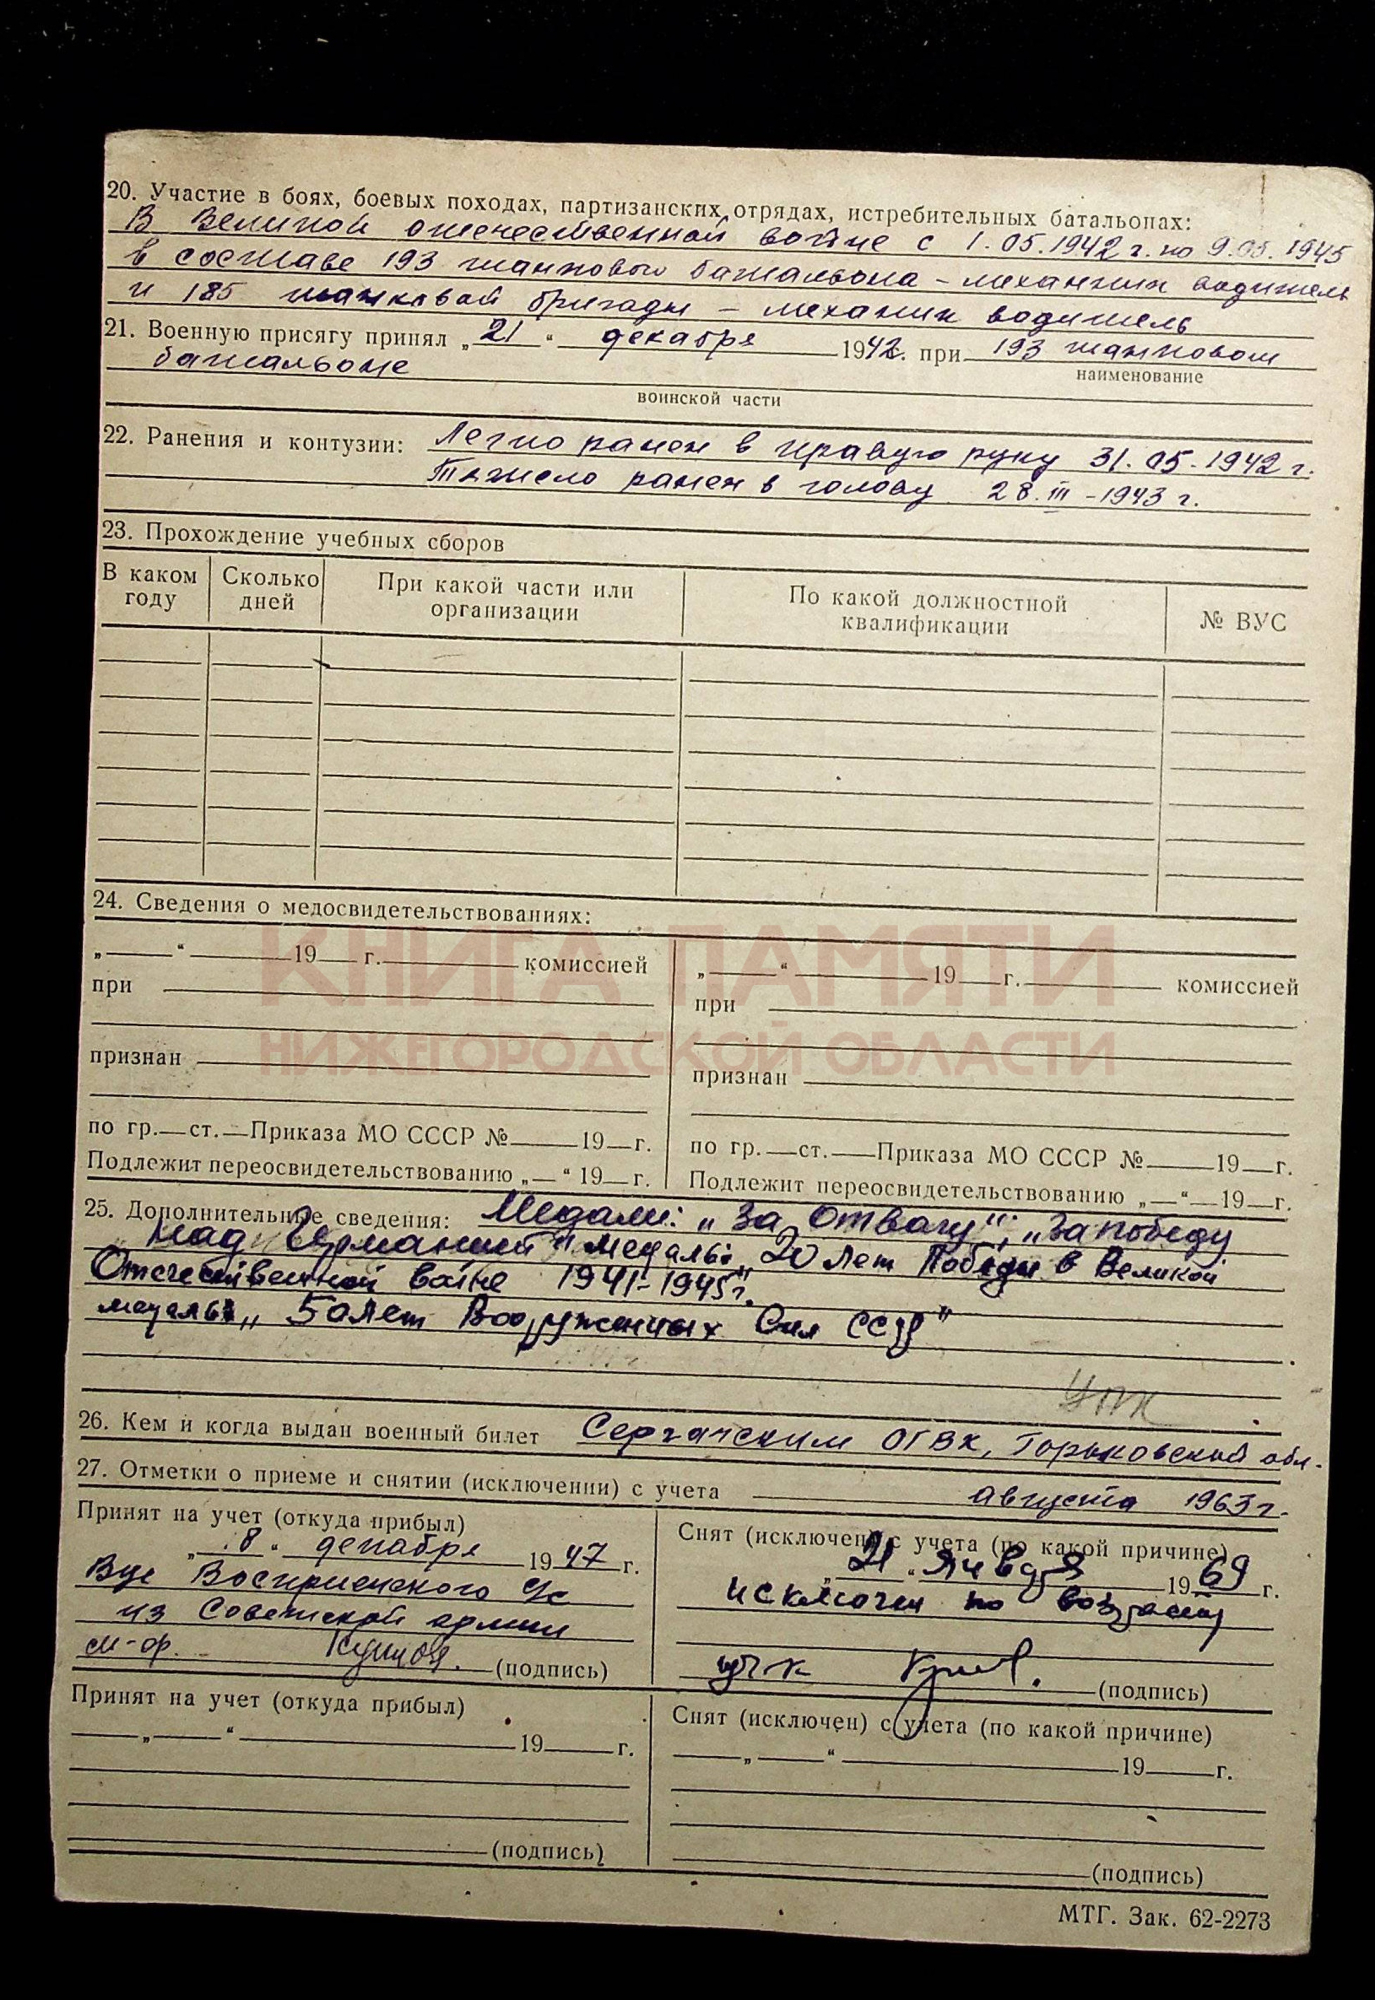 20. Участие в боях, боевых походах, партизанских отрядах, истребительных батальонах:
В Великой отечественной войне с 1.05.1942 г. по 9.05.1945
в составе 193 танкового батальона – механик водитель
и 185 танковой бригады – механик водитель
21. Военную присягу принял „21“ декабря 1942г. при 193 танковом
наименование
батальоне
воинской части
22. Ранения и контузии: Легко ранен в правую руку 31.05.1942 г.
Тяжело ранен в голову 28.III-1943 г.
23. Прохождение учебных сборов
В каком году Сколько дней При какой части или организации По какой должностной квалификации № ВУС
24. Сведения о медосвидетельствованиях:
КНИГА ПАМЯТИ
НИЖЕГОРОДСКОЙ ОБЛАСТИ
„ “ 19 г. комиссией
при
признан
по гр. ст. Приказа МО СССР № 19 г.
Подлежит переосвидетельствованию „ “ 19 г.
„ “ 19 г. комиссией
при
признан
по гр. ст. Приказа МО СССР № 19 г.
Подлежит переосвидетельствованию „ “ 19 г.
25. Дополнительные сведения: Медали: „За Отвагу“; „За победу
над Германией“ медаль „20 лет Победы в Великой
Отечественной войне 1941-1945г.
медаль „50 лет Вооруженных Сил СССР"
26. Кем и когда выдан военный билет Сергачским ОГВК, Горьковской обл.
27. Отметки о приеме и снятии (исключении) с учета августа 1963 г.
Принят на учет (откуда прибыл)
„18“ декабря 1947 г.
Вус Воскресенского с/с
из Советской армии
м-ор. (подпись)
Снят (исключен) с учета (по какой причине)
„21“ января 1969 г.
исключен по возрасту
(подпись)
Принят на учет (откуда прибыл)
„ “ 19 г.
(подпись)
Снят (исключен) с учета (по какой причине)
„ “ 19 г.
(подпись)
МТГ. Зак. 62-2273